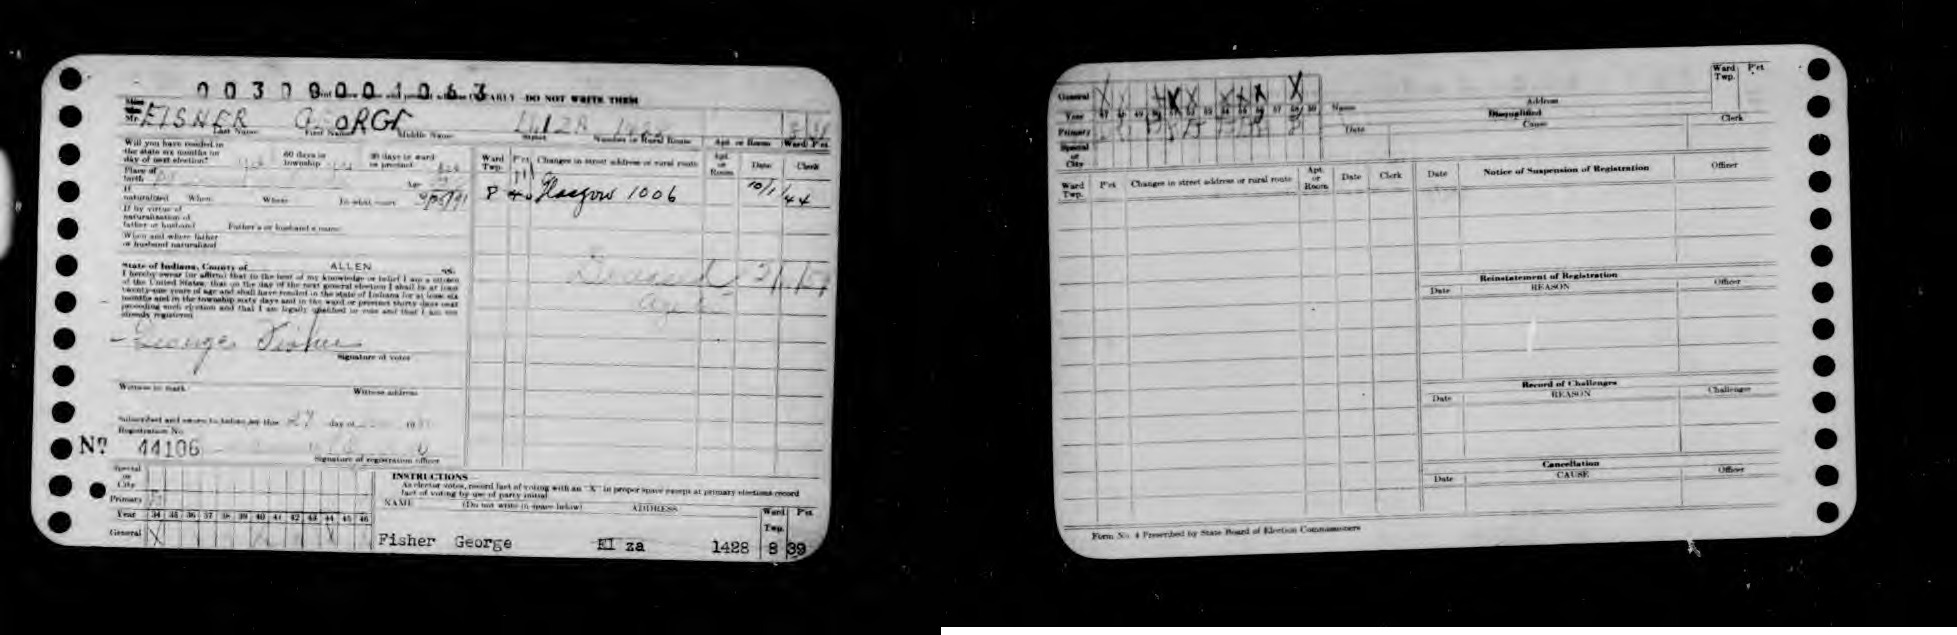 0030900 1063
EARLY DO NOT WRITE THEM
Mr. FISHER GEORGE ELIZA 1428 8 39
Last Name First Name Middle Name Street Number or Rural Route Apt. or Room Ward Pct.
Will you have resided in
the state six months on 60 days in 30 days in ward
day of next election? township or precinct
Place of
birth Age
If
naturalized When Where In what court
If by virtue of
naturalization of
father or husband Father's or husband's name
When and where father
or husband naturalized
State of Indiana, County of ALLEN ss.
I hereby swear (or affirm) that to the best of my knowledge or belief I am a citizen
of the United States; that on the day of the next general election I shall be at least
twenty-one years of age and shall have resided in the state of Indiana for at least six
months and in the township sixty days and in the ward or precinct thirty days next
preceding such election and that I am legally qualified to vote and that I am not
already registered
George Fisher
Signature of voter
Witness to mark Witness address
Subscribed and sworn to before me this 27 day of 19
Registration No.
No 44106
Signature of registration officer
Ward Twp. Pct. Changes in street address or rural route Apt. or Room Date Clerk
8 Glasgow 1006 10/1/44
Deceased
Special
or
City
Primary
Year 34 35 36 37 38 39 40 41 42 43 44 45 46
General X
INSTRUCTIONS
As elector votes, record fact of voting with an "X" in proper space except at primary elections record
fact of voting by use of party initial
NAME (Do not write in space below) ADDRESS Ward Twp. Pct.
Fisher George El za 1428 8 39
General X X X X X X X X
Year 47 48 49 50 51 52 53 54 55 56 57 58 59
Primary
Special
or
City
Name Address Ward Twp. Pct.
Disqualified
Date Cause Clerk
Ward Twp. Pct. Changes in street address or rural route Apt. or Room Date Clerk
Date Notice of Suspension of Registration Officer
Reinstatement of Registration
Date REASON Officer
Record of Challenges
Date REASON Challenger
Cancellation
Date CAUSE Officer
Form No. 4 Prescribed by State Board of Election Commissioners